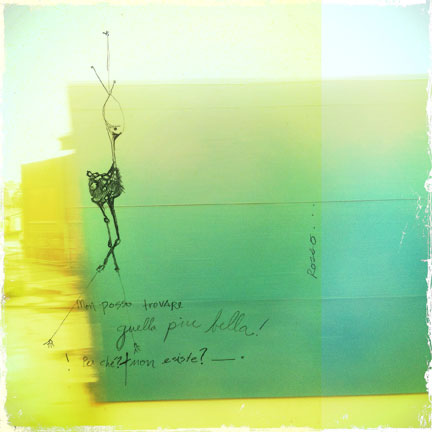 non posso trovare
quella più bella!
non esiste? —.
Rosso...